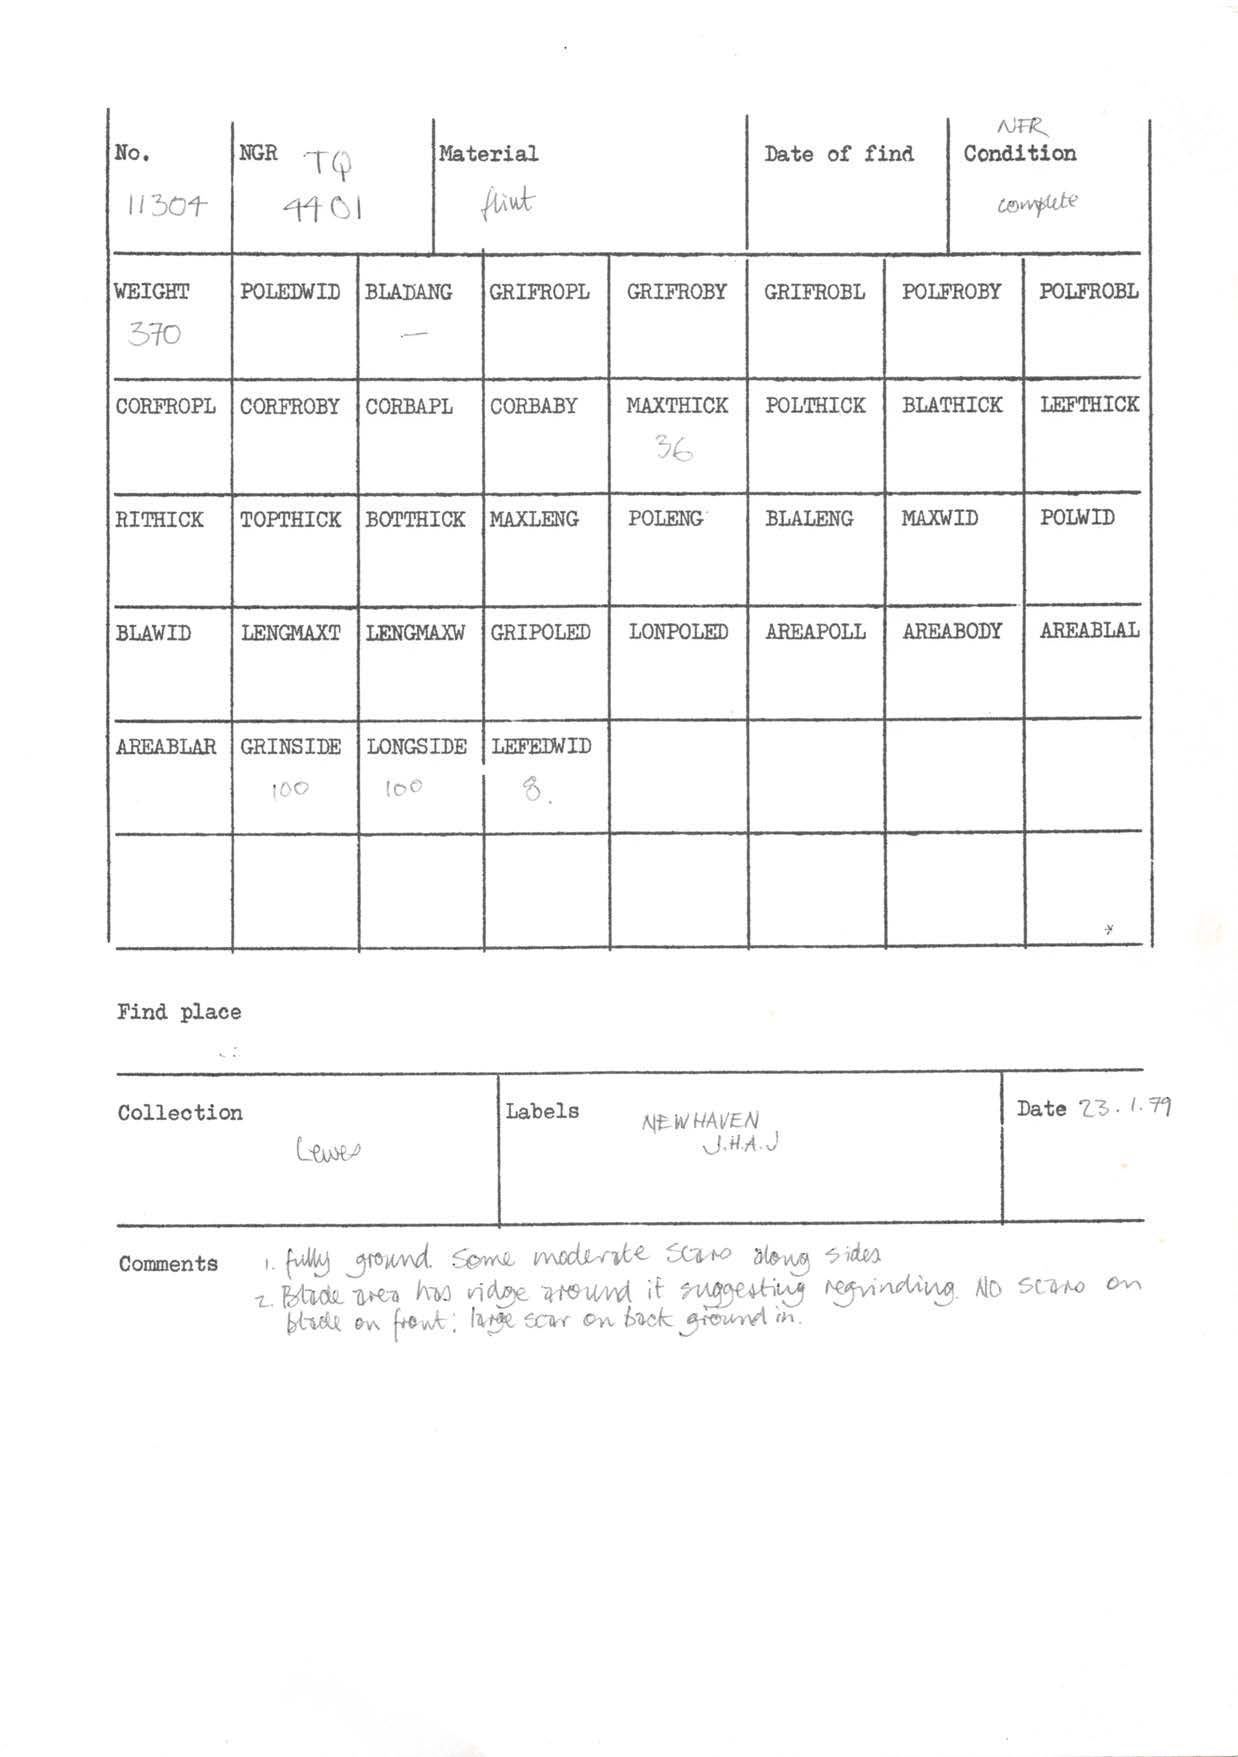 NFR
No. NGR TQ Material Date of find Condition
11304 4401 flint complete
WEIGHT POLEDWID BLADANG GRIFROPL GRIFROBY GRIFROBL POLFROBY POLFROBL
370 —
CORFROPL CORFROBY CORBAPL CORBABY MAXTHICK POLTHICK BLATHICK LEFTHICK
36
RITHICK TOPTHICK BOTTHICK MAXLENG POLENG BLALENG MAXWID POLWID
BLAWID LENGMAXT LENGMAXW GRIPOLED LONPOLED AREAPOLL AREABODY AREABLAL
AREABLAR GRINSIDE LONGSIDE LEFEDWID
100 100 8.
Find place
Collection Labels NEWHAVEN Date 23.1.79
Lewes J.H.A.J
Comments 1. fully ground. Some moderate scars along sides
2. Blade area has ridge around it suggesting regrinding. NO scars on
blade on front; large scar on back ground in.